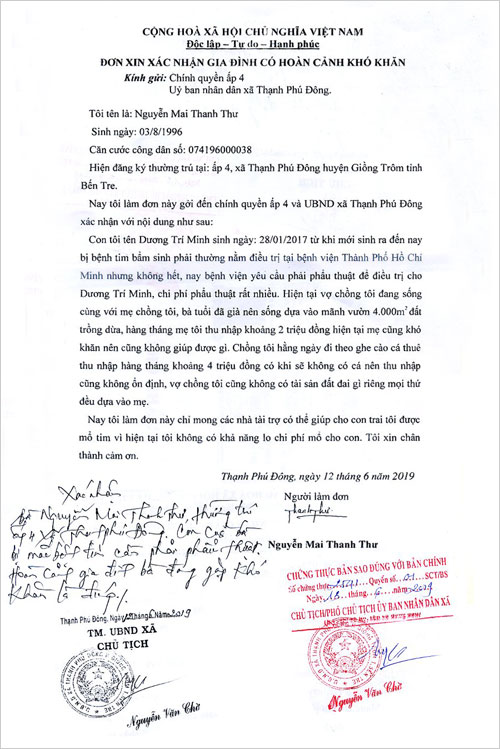 CỘNG HOÀ XÃ HỘI CHỦ NGHĨA VIỆT NAM
Độc lập – Tự do – Hạnh phúc
ĐƠN XIN XÁC NHẬN GIA ĐÌNH CÓ HOÀN CẢNH KHÓ KHĂN
Kính gửi: Chính quyền ấp 4
Uỷ ban nhân dân xã Thạnh Phú Đông.
Tôi tên là: Nguyễn Mai Thanh Thư
Sinh ngày: 03/8/1996
Căn cước công dân số: 074196000038
Hiện đăng ký thường trú tại: ấp 4, xã Thạnh Phú Đông huyện Giồng Trôm tỉnh
Bến Tre.
Nay tôi làm đơn này gởi đến chính quyền ấp 4 và UBND xã Thạnh Phú Đông
xác nhận với nội dung như sau:
Con tôi tên Dương Trí Minh sinh ngày: 28/01/2017 từ khi mới sinh ra đến nay
bị bệnh tim bẩm sinh phải thường nằm điều trị tại bệnh viện Thành Phố Hồ Chí
Minh nhưng không hết, nay bệnh viện yêu cầu phải phẩu thuật để điều trị cho
Dương Trí Minh, chi phí phẩu thuật rất nhiều. Hiện tại vợ chồng tôi đang sống
cùng với mẹ chồng tôi, bà tuổi đã già nên sống dựa vào mãnh vườn 4.000m² đất
trồng dừa, hàng tháng mẹ tôi thu nhập khoảng 2 triệu đồng hiện tại mẹ cũng khó
khăn nên cũng không giúp được gì. Chồng tôi hằng ngày đi theo ghe cào cá thuê
thu nhập hàng tháng khoảng 4 triệu đồng có khi sẽ không có cá nên thu nhập
cũng không ổn định, vợ chồng tôi cũng không có tài sản đất đai gì riêng mọi thứ
đều dựa vào mẹ.
Nay tôi làm đơn này chỉ mong các nhà tài trợ có thể giúp cho con trai tôi được
mổ tim vì hiện tại tôi không có khả năng lo chi phí mổ cho con. Tôi xin chân
thành cảm ơn.
Thạnh Phú Đông, ngày 12 tháng 6 năm 2019
Người làm đơn
Thanh Thư
Nguyễn Mai Thanh Thư
Xác nhận
bà Nguyễn Mai Thanh Thư, thường trú
ấp 4 xã Thạnh Phú Đông. Con của bà
bị mắc bệnh tim cần phải phẩu thuật.
Hoàn cảnh gia đình bà đang gặp khó
khăn là đúng./.
Thạnh Phú Đông, Ngày 12 tháng 6 năm 2019
TM. UBND XÃ
CHỦ TỊCH
Nguyễn Văn Chữ
CHỨNG THỰC BẢN SAO ĐÚNG VỚI BẢN CHÍNH
Số chứng thực Quyển số 01 SCT/BS
Ngày 13 tháng 6 năm 2019
CHỦ TỊCH/PHÓ CHỦ TỊCH ỦY BAN NHÂN DÂN XÃ
Nguyễn Văn Chữ